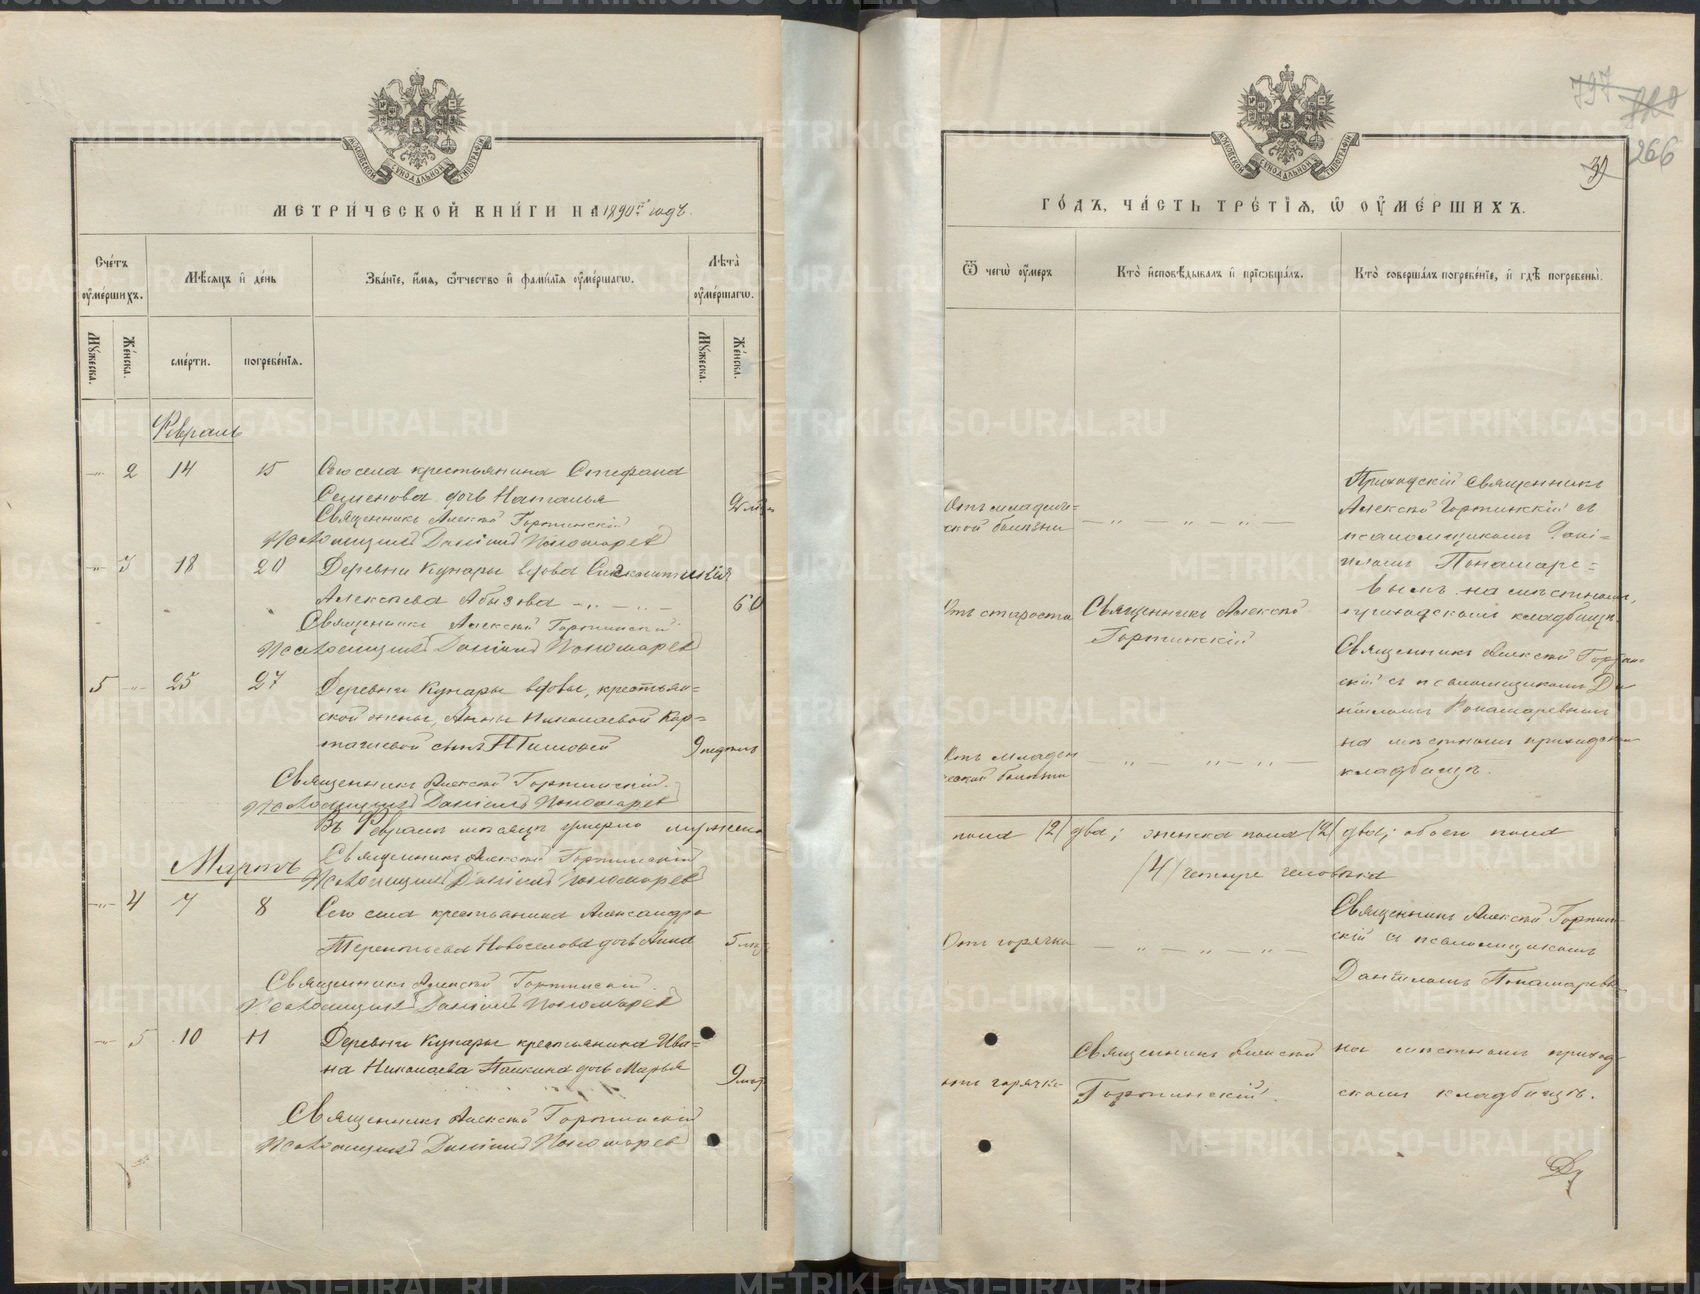 МЕТРИ́ЧЕСКОЙ КНИ́ГИ НА 1890й годъ.
Сче́тъ оу҆ме́ршихъ.
Мѣ́сяцъ и҆ де́нь
Зва́нїе, и҆́мѧ, ѻ҆́тчество и҆ фами́лїѧ оу҆ме́ршагѡ.
Лѣ́та оу҆ме́ршагѡ.
Мꙋ́жеска.
Же́нска.
сме́рти.
погребе́нїѧ.
Мꙋ́жеска.
Же́нска.
Февраль
2 14 15 Сего села крестьянина Стефана
Семенова дочь Наталья
Священникъ Алексѣй Гортинскій
Псаломщикъ Даніилъ Пономаревъ
3 18 20 Деревни Кунары вдова
Алексѣева Абызова 60
Священникъ Алексѣй Гортинскій
Псаломщикъ Даніилъ Пономаревъ
5 25 27 Деревни Кунары вдовы, крестьян=
ской жены, Анны Николаевой Кар=
ташевой сынъ Тимофей 9 недѣль
Священникъ Алексѣй Гортинскій.
Псаломщикъ Даніилъ Пономаревъ
Въ Февралѣ мѣсяцѣ умерло мужеска
Священникъ Алексѣй Гортинскій
Мартъ
Псаломщикъ Даніилъ Пономаревъ
4 7 8 Сего села крестьянина Александра
Терентьева Новоселова дочь Анна 5 мѣс
Священникъ Алексѣй Гортинскій.
Псаломщикъ Даніилъ Пономаревъ
5 10 11 Деревни Кунары крестьянина Ива=
на Николаева Папкина дочь Марья 9
Священникъ Алексѣй Гортинскій
Псаломщикъ Даніилъ Пономаревъ
797
266
ГО́ДЪ, ЧА́СТЬ ТРЕ́ТЇѦ, Ѡ҆ ОУ҆МЕ́РШИХЪ.
Ѿ чегѡ̀ оу҆́меръ
Кто̀ и҆сповѣ́дывалъ и҆ прїѡбща́лъ.
Кто̀ соверша́лъ погребе́нїе, и҆ гдѣ̀ погребены̀.
Отъ младенче=
ской болѣзни
Приходскій Священникъ
Алексѣй Гортинскій съ
псаломщикомъ Дані=
иломъ Понамаре=
вымъ на мѣстномъ
приходскомъ кладбищѣ.
Отъ старости Священникъ Алексѣй
Гортинскій
Священникъ Алексѣй Гортин=
скій съ псаломщикомъ Да
ніиломъ Понамаревымъ
на мѣстномъ приходском
кладбищѣ.
Отъ младен
ческой болѣзни
пола (2) два; женска пола (2) два; обоего пола
(4) четыре человѣка
Отъ горячки
Священникъ Алексѣй Гортин=
скій съ псаломщикомъ
Даніиломъ Понамаревым
отъ горячки Священникъ Алексѣй
Гортинскій.
на мѣстномъ приход=
скомъ кладбищѣ.
METRIKI.GASO-URAL.RU